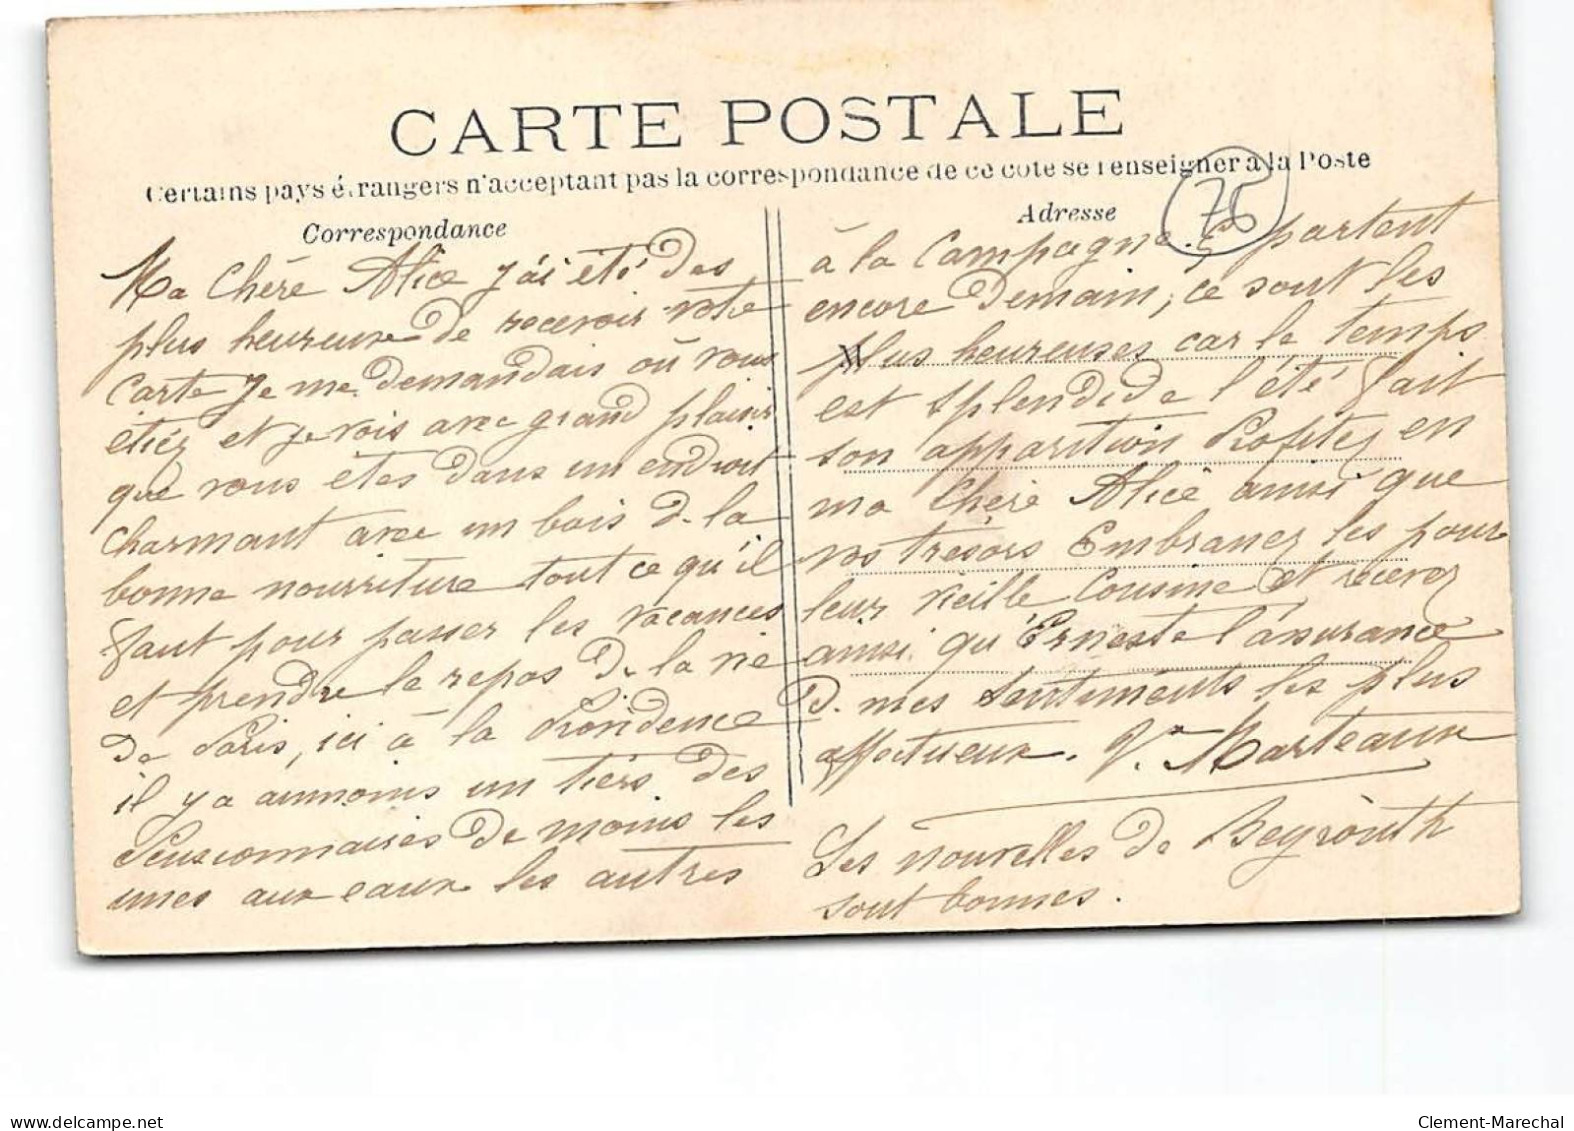 CARTE POSTALE
Certains pays étrangers n'acceptant pas la correspondance de ce côté se renseigner à la Poste
Correspondance
Adresse
75
Ma Chère Alice j'ai été des
plus heureuse de recevoir votre
Carte Je me demandais où vous
étiez et je vois avec grand plaisir
que vous êtes dans un endroit
charmant avec un bois de la
bonne nourriture tout ce qu'il
faut pour passer les vacances
et prendre le repos de la vie
de Paris, ici à la Providence
il y a aumoins un tiers des
Pensionnaires de moins les
unes aux eaux les autres
à la Campagne. partent
encore demain, ce sont les
M
plus heureuses car le temps
est splendide l'été fait
son apparition Profitez en
ma Chère Alice ainsi que
vos trésors Embrassez les pour
leur vieille Cousine et recevez
ainsi qu'Erneste l'assurance
de mes sentiments les plus
affectueux. Vve Marteaux
Les nouvelles de Beyrouth
sont bonnes.
www.delcampe.net
Clement-Marechal